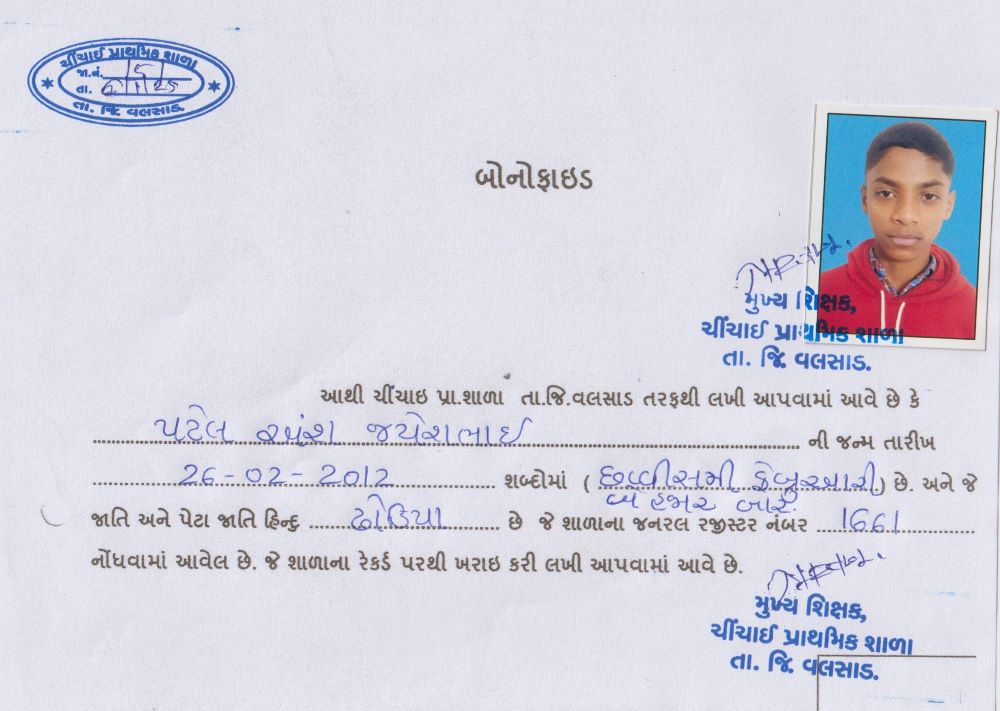 ચીંચાઈ પ્રાથમિક શાળા
જા.નં. 5
તા. 6/1/25
તા. જિ. વલસાડ.
બોનોફાઇડ
મુખ્ય શિક્ષક,
ચીંચાઈ પ્રાથમિક શાળા
તા. જિ. વલસાડ.
આથી ચીંચાઇ પ્રા.શાળા તા.જિ.વલસાડ તરફથી લખી આપવામાં આવે છે કે
પટેલ અંશ જયેશભાઈ ની જન્મ તારીખ
26-02-2012 શબ્દોમાં ( છવ્વીસમી ફેબ્રુઆરી ) છે. અને જે
બે હજાર બાર
જાતિ અને પેટા જાતિ હિન્દુ ઢોડિયા છે જે શાળાના જનરલ રજીસ્ટર નંબર 1661
નોંધવામાં આવેલ છે. જે શાળાના રેકર્ડ પરથી ખરાઇ કરી લખી આપવામાં આવે છે.
મુખ્ય શિક્ષક,
ચીંચાઈ પ્રાથમિક શાળા
તા. જિ. વલસાડ.